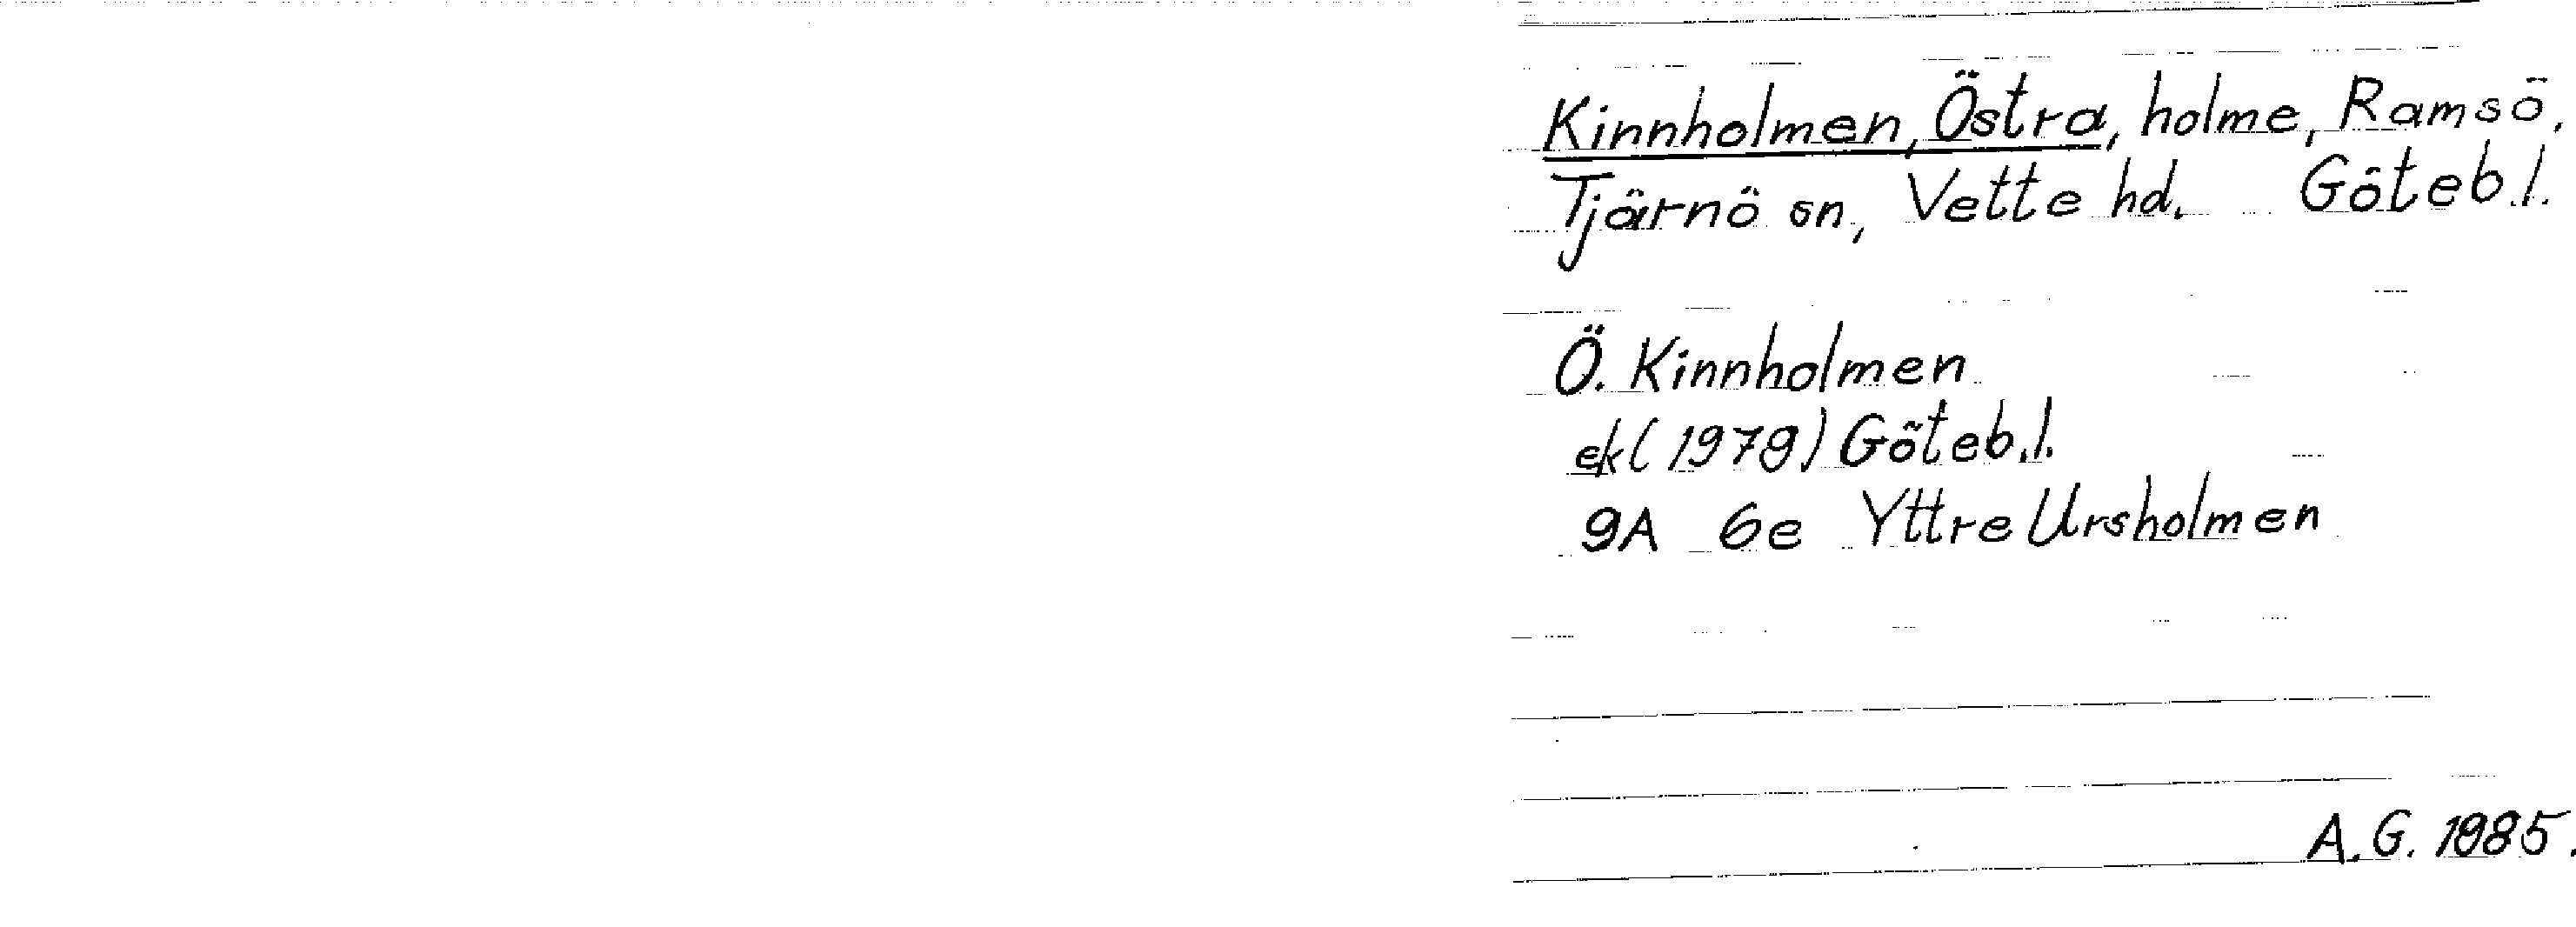 Kinnholmen, Östra, holme, Ramsö,
Tjärnö sn, Vette hd. Göteb.l.
Ö. Kinnholmen
ek (1979) Göteb.l.
9A 6e Yttre Ursholmen
A.G. 1985.